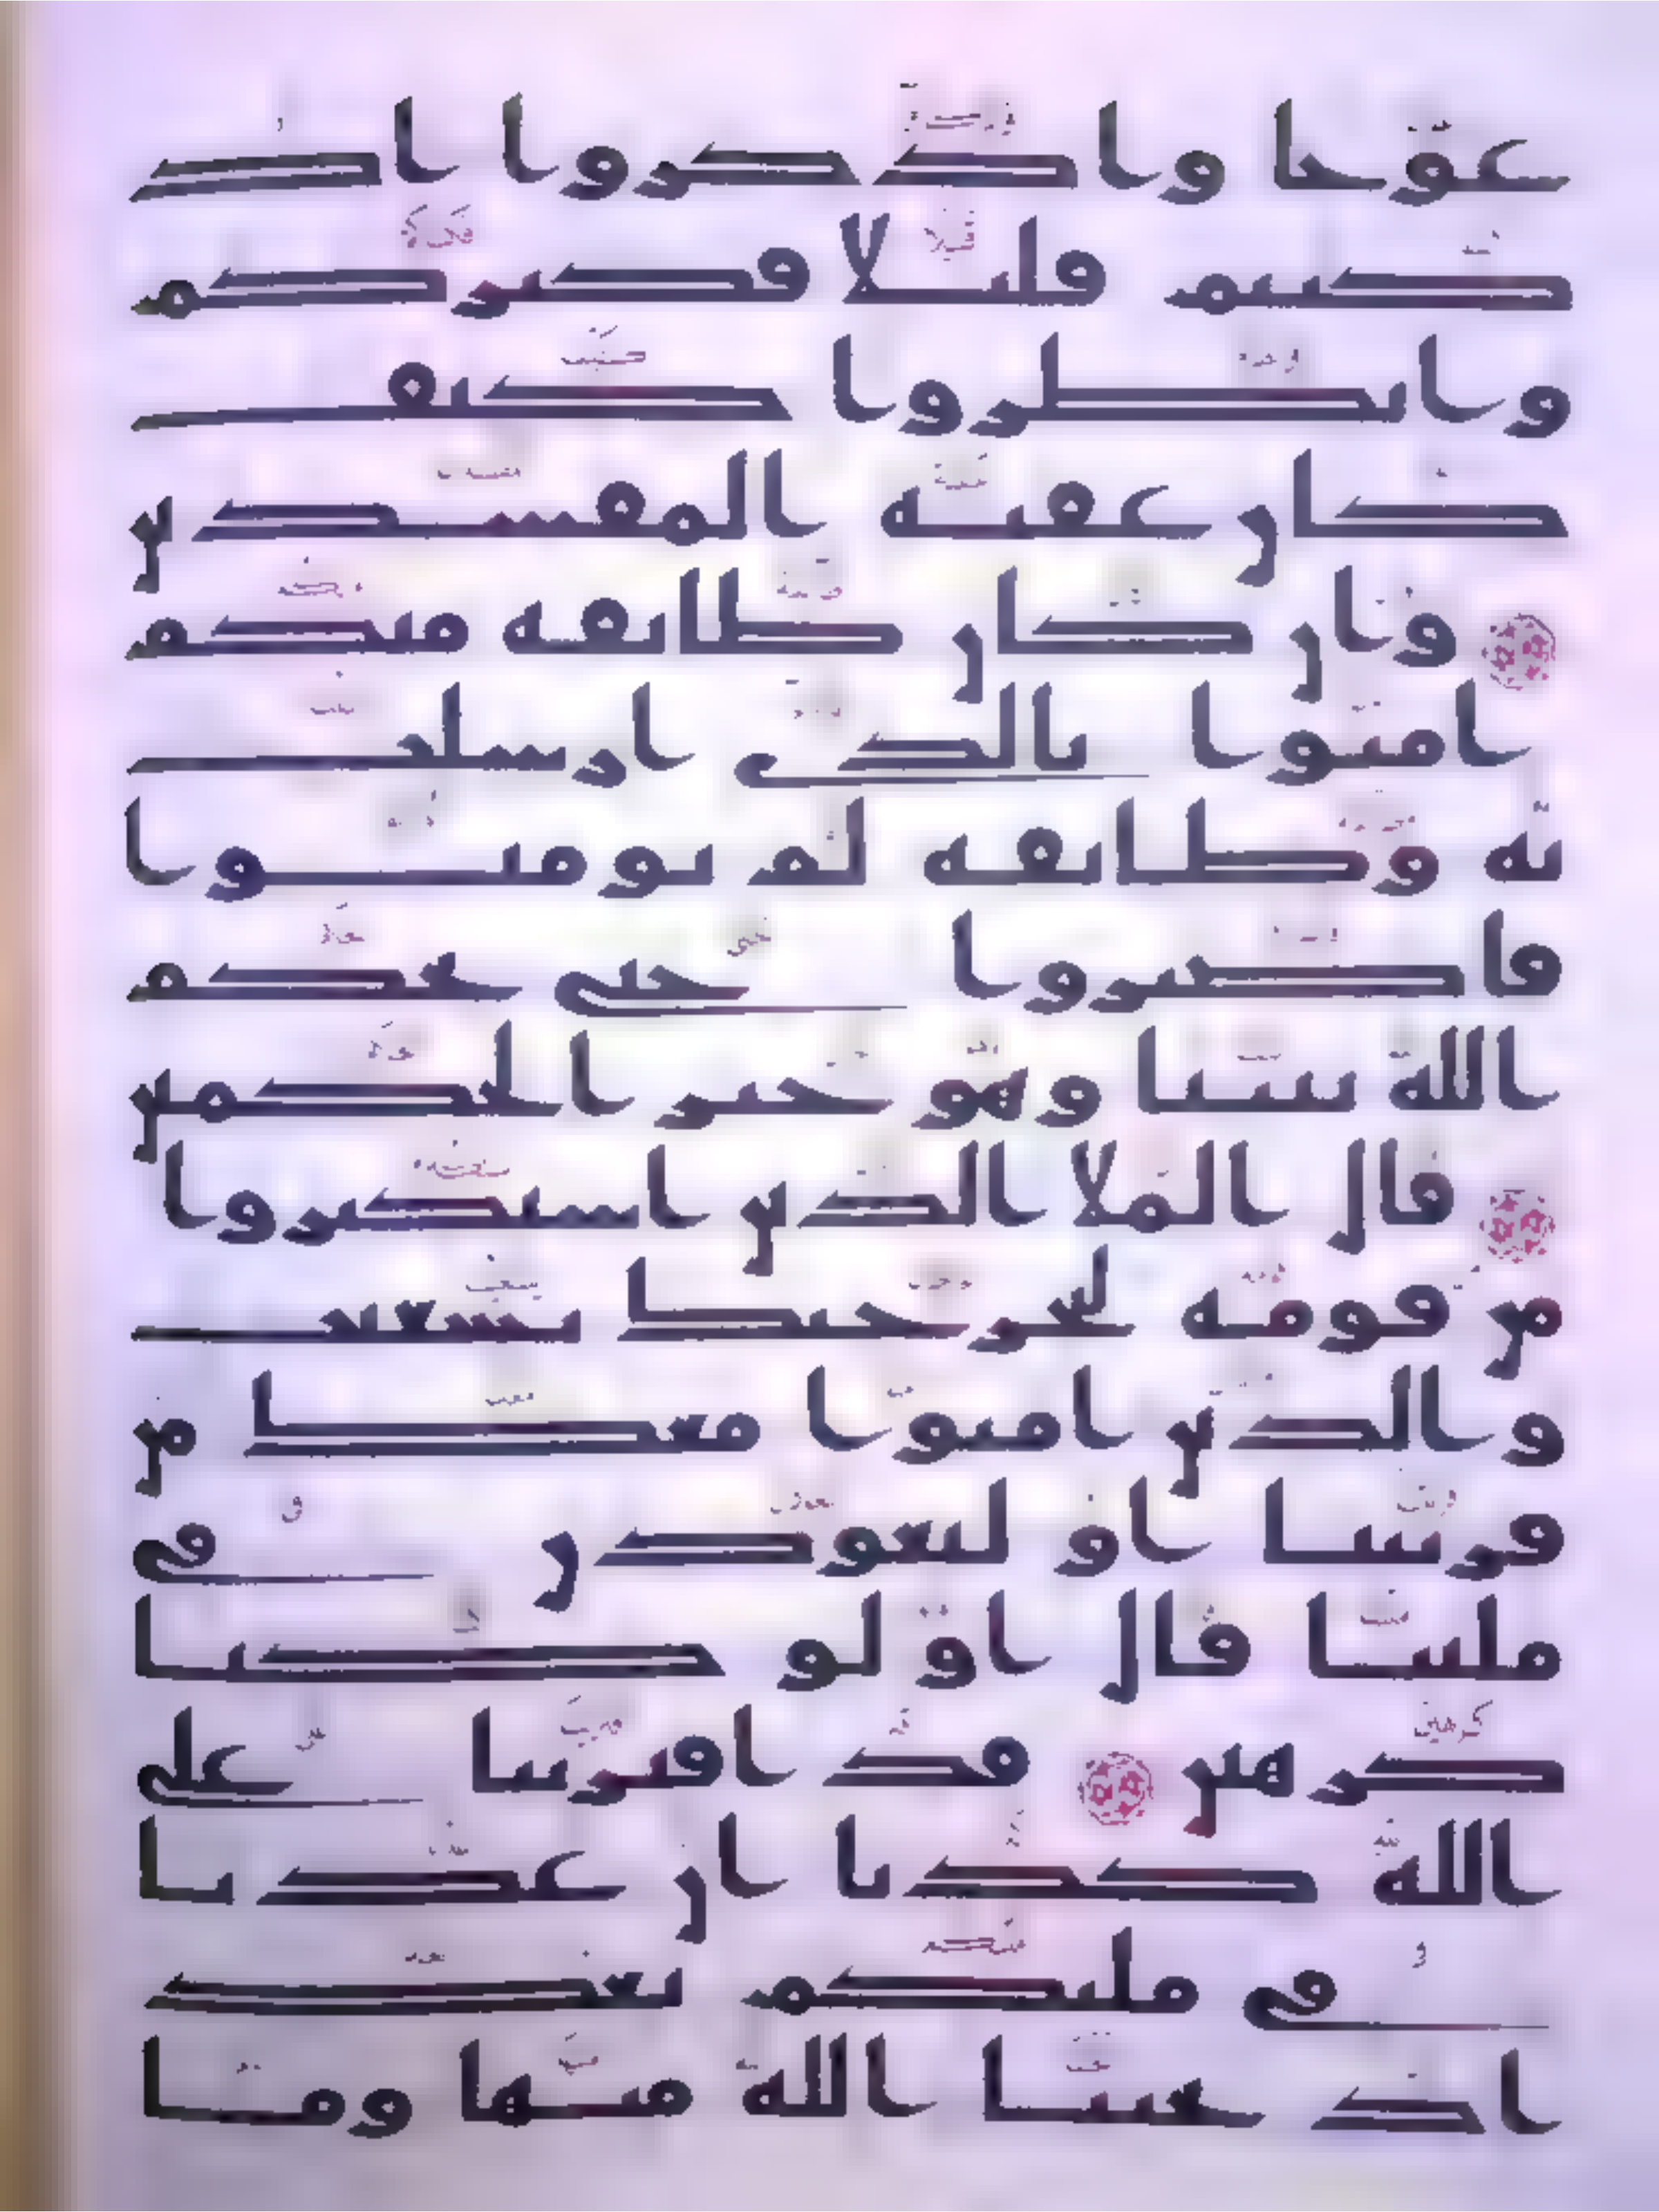 عوجا واذكروا اذ
كنتم قليلا فكثركم
وانظروا كيف
كان عقبة المفسدين
وان كان طائفة منكم
امنوا بالذي ارسلت
به وطائفة لم يومنوا
فاصبروا حتى يحكم
الله بيننا وهو خير الحكمين
قال الملا الذين استكبروا
من قومه لنخرجنك يشعيب
والذين امنوا معك من
قريتنا او لتعودن في
ملتنا قال اولو كنا
كرهين قد افترينا على
الله كذبا ان عدنا
في ملتكم بعد
اذ نجينا الله منها وما